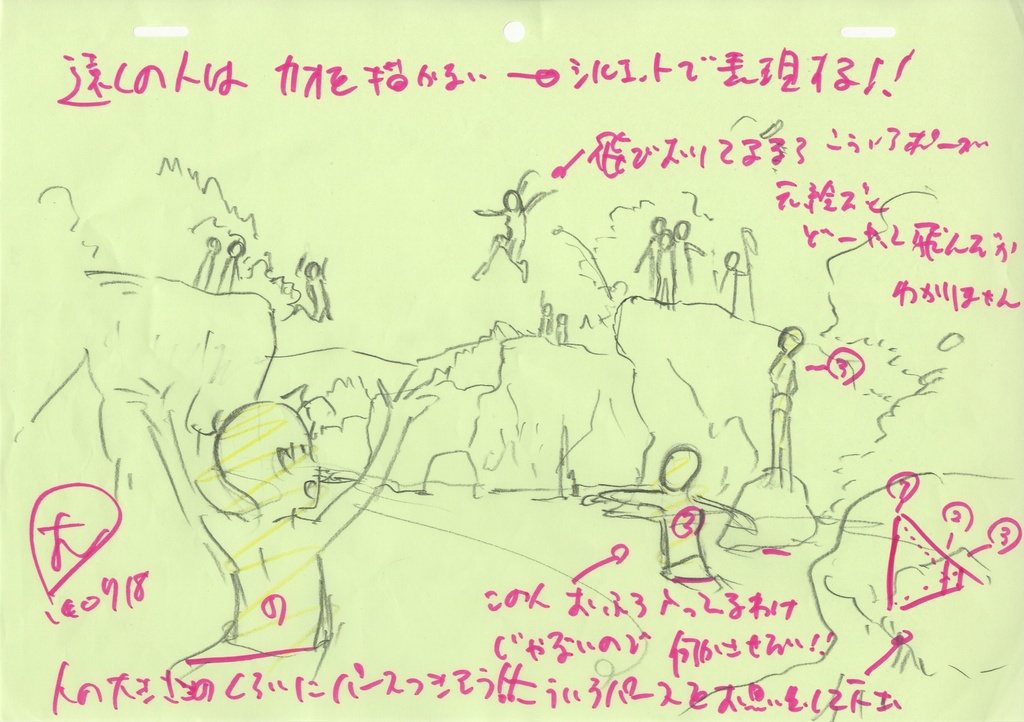 遠くの人は カオを描かない → シルエットで表現する!!
飛びおりてるなら こういうポーズ
元絵だと
どーやって飛んでるか
わかりません
③
① ② ③
②
この人 おふろ入ってるわけ
じゃないので 何かさせたい!!
①
人の大きさのくらいにパースつきそう!! こういうパースと お思いをして下さい